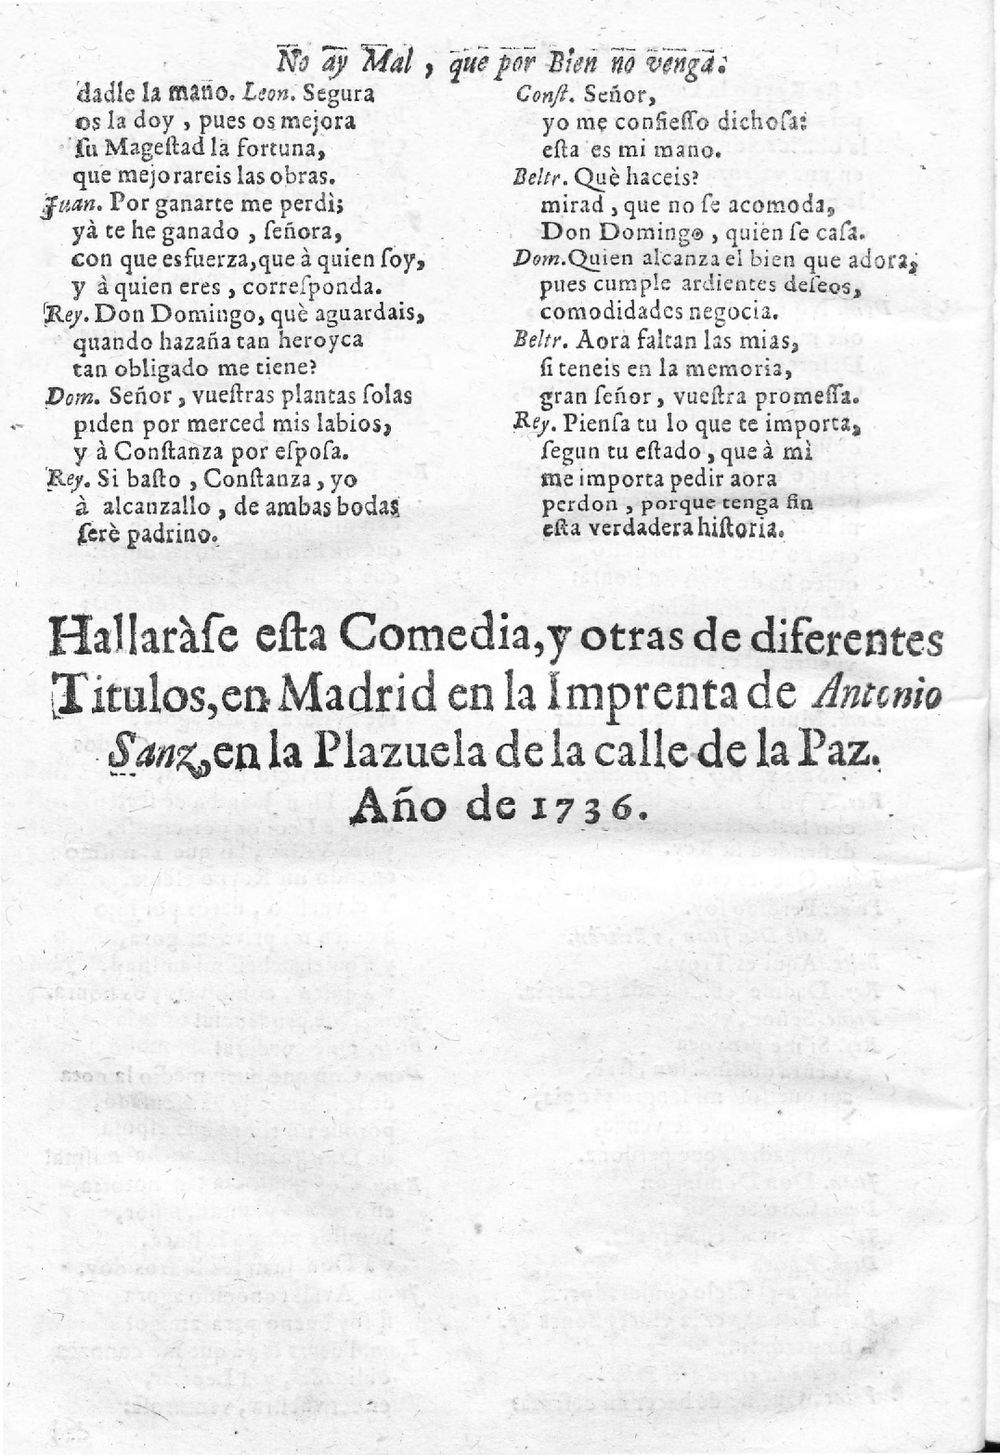 No ay Mal, que por Bien no venga.
dadle la mano. Leon. Segura
os la doy, pues os mejora
ſu Mageſtad la fortuna,
que mejorareis las obras.
Juan. Por ganarte me perdì;
yà te he ganado, ſeñora,
con que esfuerza, que à quien ſoy,
y à quien eres, correſponda.
Rey. Don Domingo, què aguardais,
quando hazaña tan heroyca
tan obligado me tiene?
Dom. Señor, vueſtras plantas ſolas
piden por merced mis labios,
y à Conſtanza por eſpoſa.
Rey. Si baſto, Conſtanza, yo
à alcanzallo, de ambas bodas
ſerè padrino.
Conſt. Señor,
yo me confieſſo dichoſa:
eſta es mi mano.
Beltr. Què haceis?
mirad, que no ſe acomoda,
Don Domingo, quien ſe caſa.
Dom. Quien alcanza el bien que adora,
pues cumple ardientes deſeos,
comodidades negocia.
Beltr. Aora faltan las mias,
ſi teneis en la memoria,
gran ſeñor, vueſtra promeſſa.
Rey. Pienſa tu lo que te importa,
ſegun tu eſtado, que à mì
me importa pedir aora
perdon, porque tenga fin
eſta verdadera hiſtoria.
Hallaràſe eſta Comedia, y otras de diferentes
Titulos, en Madrid en la Imprenta de Antonio
Sanz, en la Plazuela de la calle de la Paz.
Año de 1736.